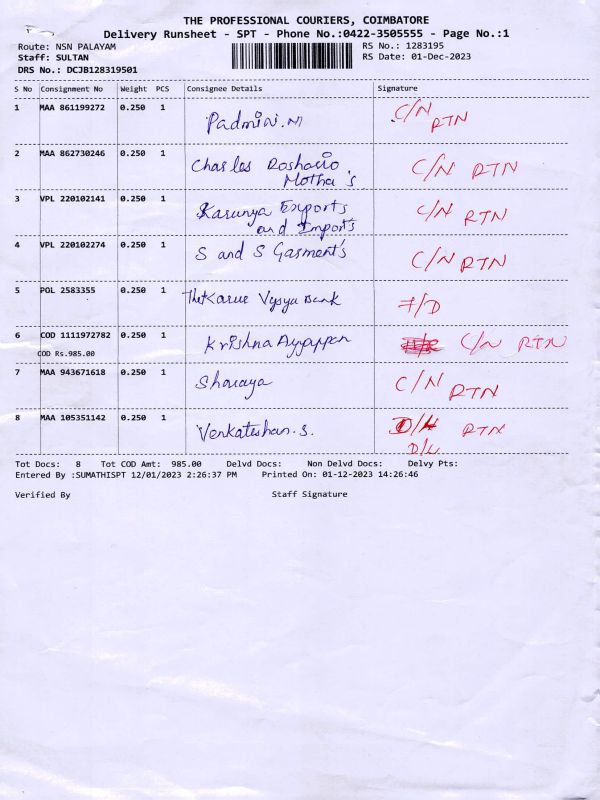 THE PROFESSIONAL COURIERS, COIMBATORE
Delivery Runsheet - SPT - Phone No.:0422-3505555 - Page No.:1
Route: NSN PALAYAM RS No.: 1283195
Staff: SULTAN RS Date: 01-Dec-2023
DRS No.: DCJB128319501
S No Consignment No Weight PCS Consignee Details Signature
1 MAA 861199272 0.250 1 Padmini.N C/N RTN
2 MAA 862730246 0.250 1 Charles C/N RTN
Motha's
3 VPL 220102141 0.250 1 Karunya Exports C/N RTN
and Imports
4 VPL 220102274 0.250 1 S and S Garment's C/N RTN
5 POL 2583355 0.250 1 The Karur Vysya Bank F/D
6 COD 1111972782 0.250 1 Krishna Ayyappen C/N RTN
COD Rs.985.00
7 MAA 943671618 0.250 1 Sharaya C/N RTN
8 MAA 105351142 0.250 1 Venkateshan.S. D/L RTN
D/L
Tot Docs: 8 Tot COD Amt: 985.00 Delvd Docs: Non Delvd Docs: Delvy Pts:
Entered By :SUMATHISPT 12/01/2023 2:26:37 PM Printed On: 01-12-2023 14:26:46
Verified By Staff Signature